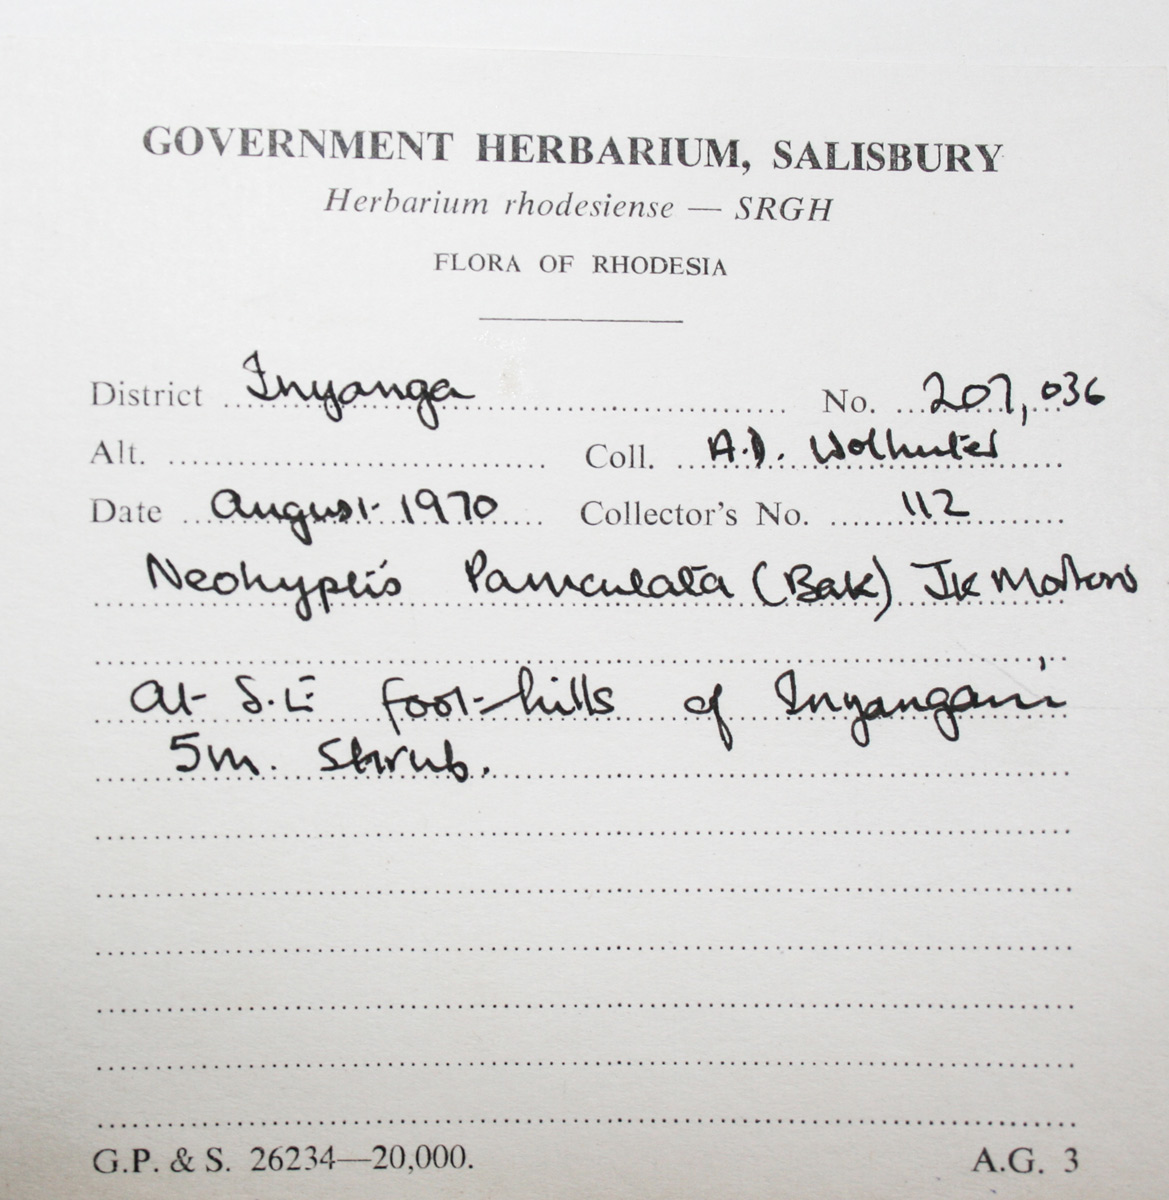 GOVERNMENT HERBARIUM, SALISBURY
Herbarium rhodesiense — SRGH
FLORA OF RHODESIA
District Inyanga No. 207,036
Alt. Coll. A.D. Wolhuter
Date August 1970 Collector's No. 112
Neohyptis Paniculata (Bak) JK Mortons
at S.E foot-hills of Inyangani
5m. Shrub.
G.P. & S. 26234—20,000. A.G. 3